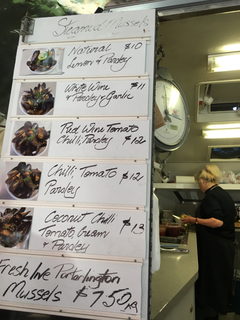 Steamed Mussels
Natural $10
Lemon & Parsley
White Wine $11
& Parsley & Garlic
Red Wine Tomato
Chilli, Parsley $12
Chilli Tomato $12
Parsley
Coconut Chilli $13
Tomato, Cream
& Parsley
Fresh live
Mussels $7.50